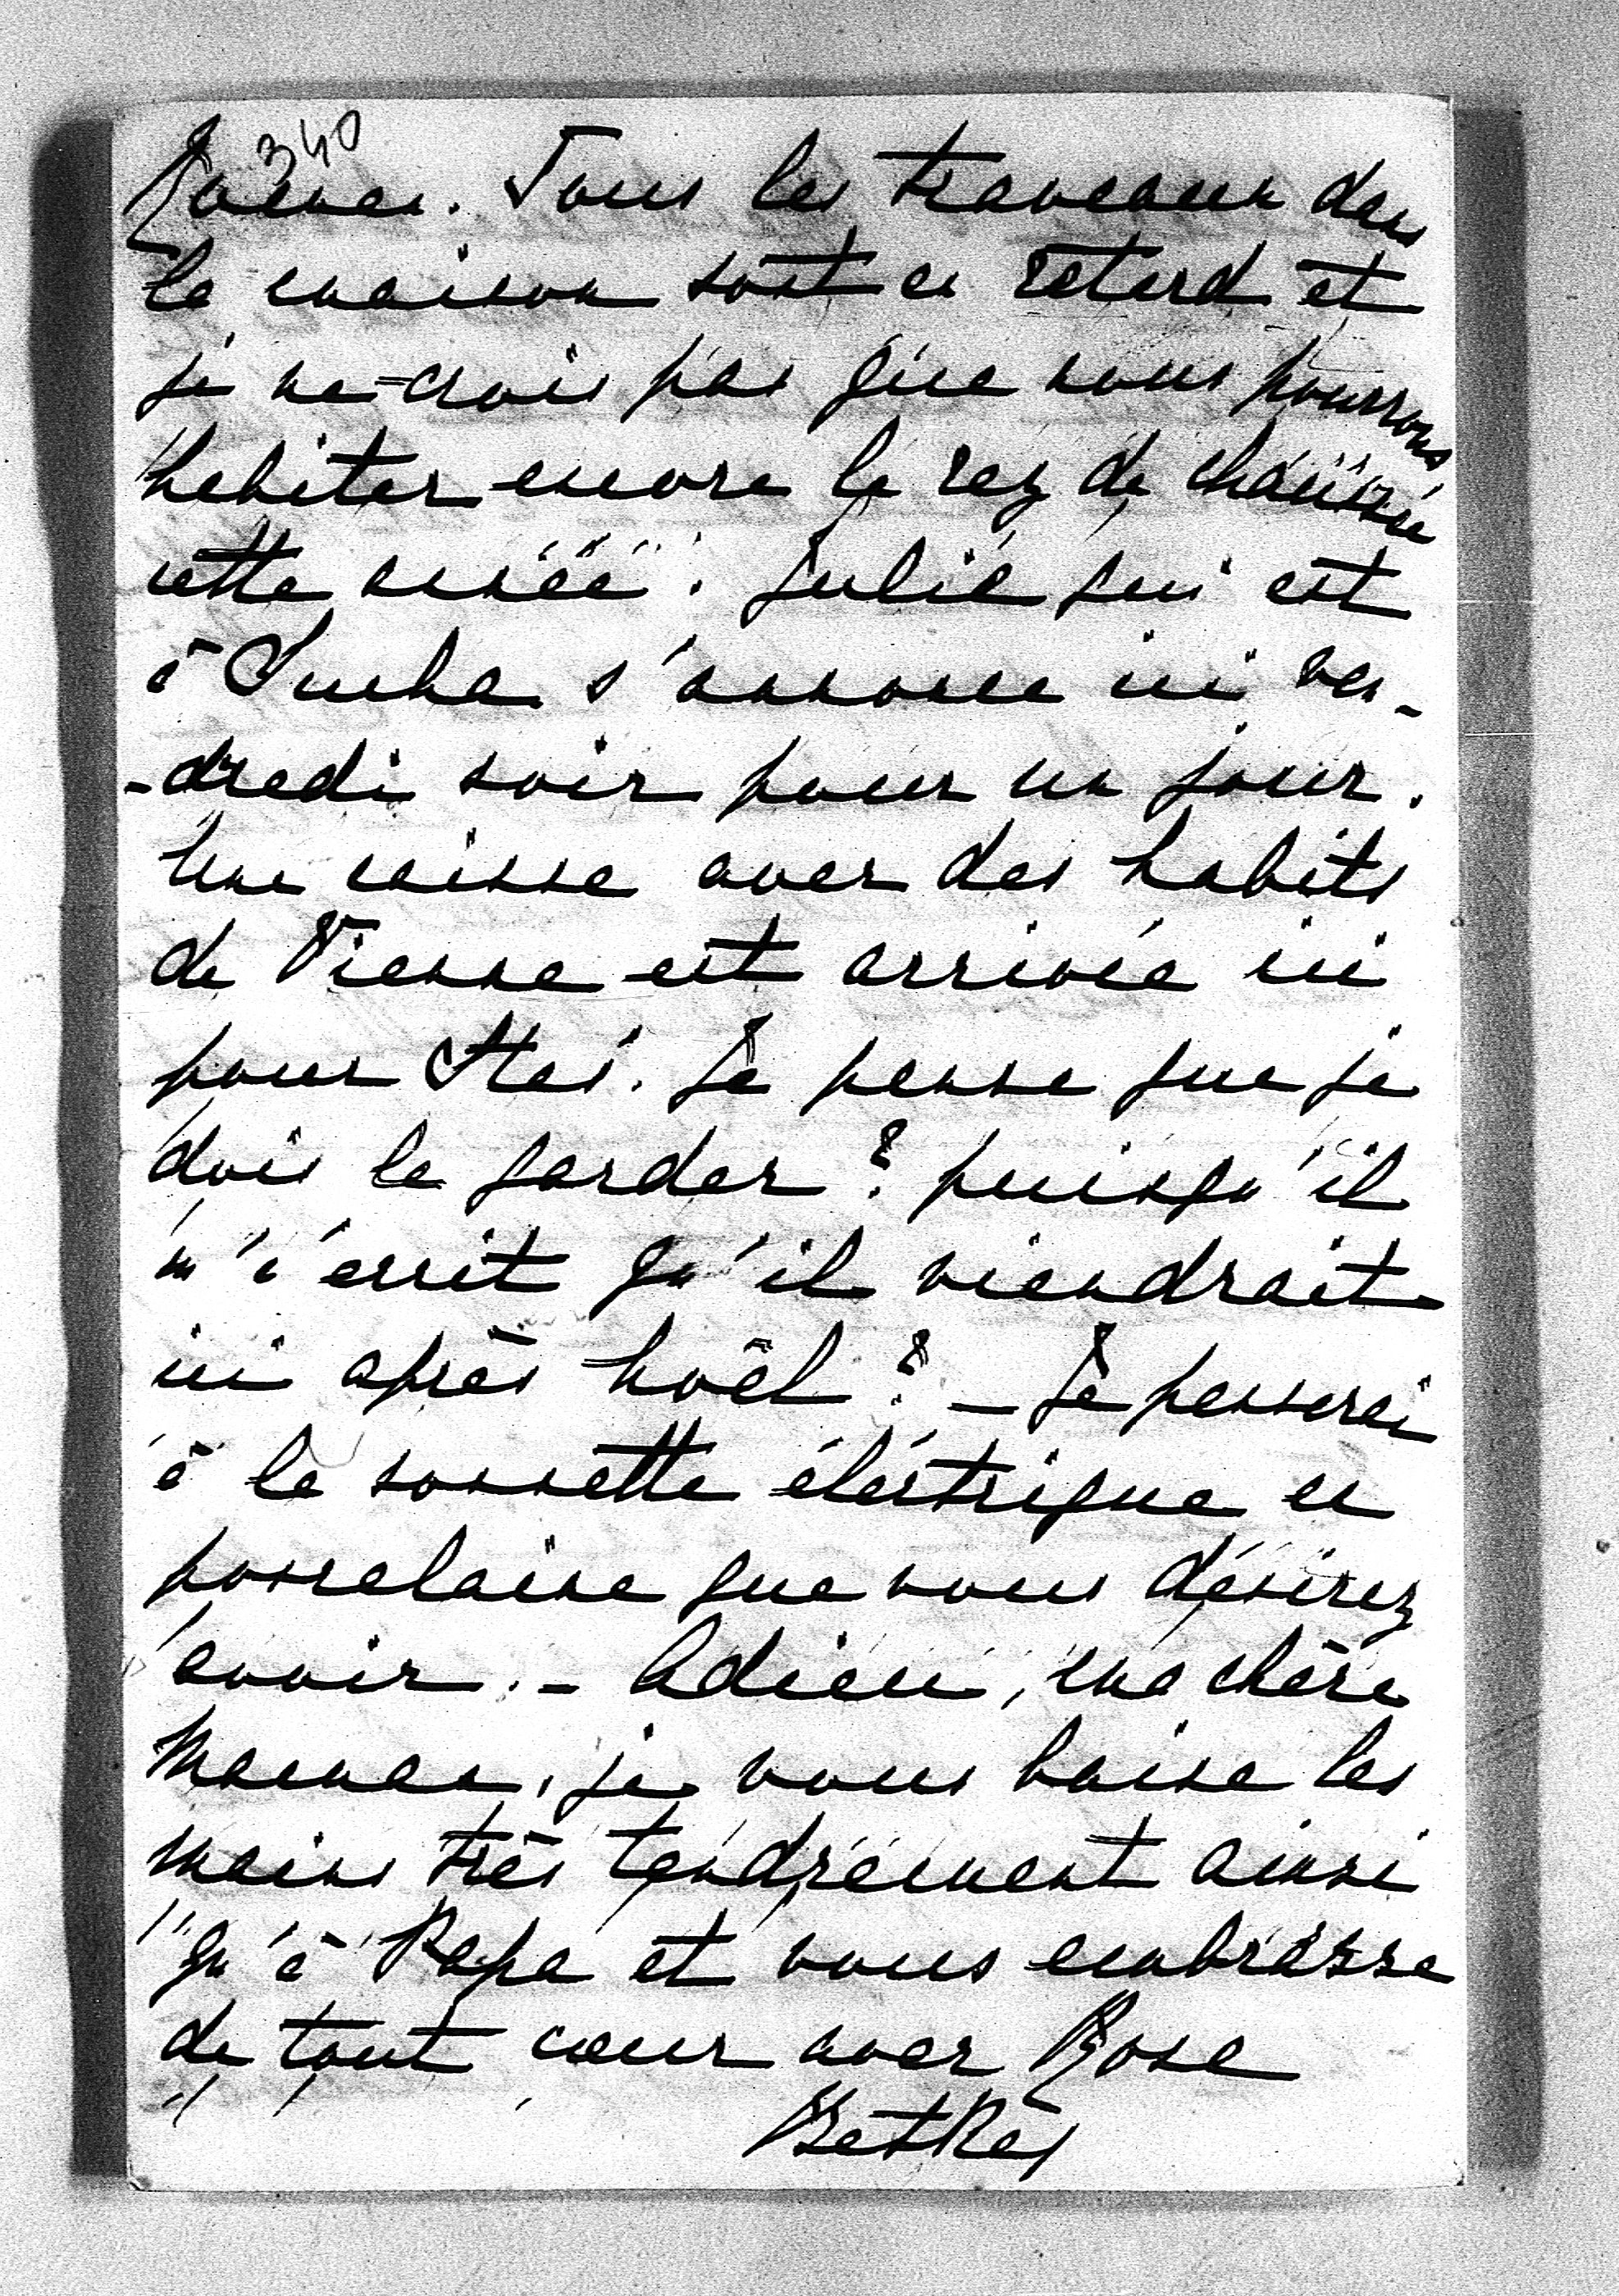 340
Tous les travaux dans
la maison sont en retard et
je ne crois pas que nous pourrons
habiter encore le rez de chaussée
cette année. Julie qui est
à Sucha s'annonce ici ven-
-dredi soir pour un jour.
Une caisse avec des habits
de Vienne est arrivée ici
pour Staś. Je pense que je
dois la garder? puisqu'il
m'écrit qu'il viendrait
ici après Noël? – Je penserai
à la sonnette électrique en
porcelaine que vous désirez
avoir. – Adieu, ma chère
Maman, je vous baise les
mains très tendrement ainsi
qu'à Papa et vous embrasse
de tout cœur avec Rose
Betka